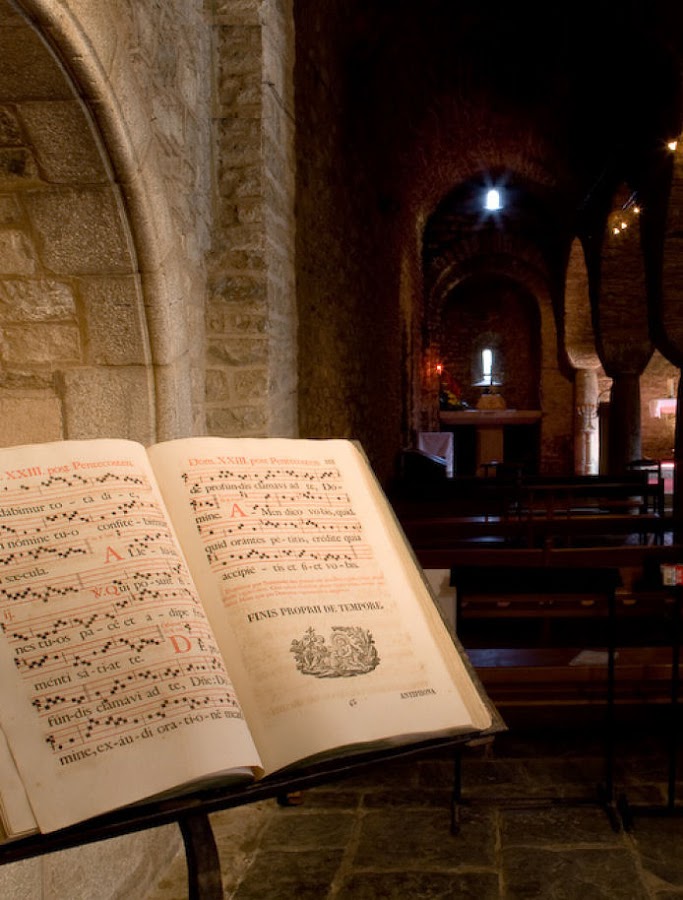 XXIII. post Pentecosten.
dabimur to - ta di - e,
in nómine tu-o confite - bimur
sæcula. A Lle -
V. Qui po-suí - sti
nes tu-os pa - ce et a - dipe
menti sa - ti-a te. D E pro-
fún-dis clamávi ad te, Dñe: Dó-
mine, ex-áu-di ora - ti-o-nẽ meam
Dom. XXIII. post Pentecosten.
dè profún-dis clamávi ad te, Dó-
mine. A Men dico vo-bis, quid-
quid orántes pé-titis, crédite quia
accipié - tis et fi-et vo-bis.
FINIS PROPRII DE TEMPORE.
ANTIPHONA